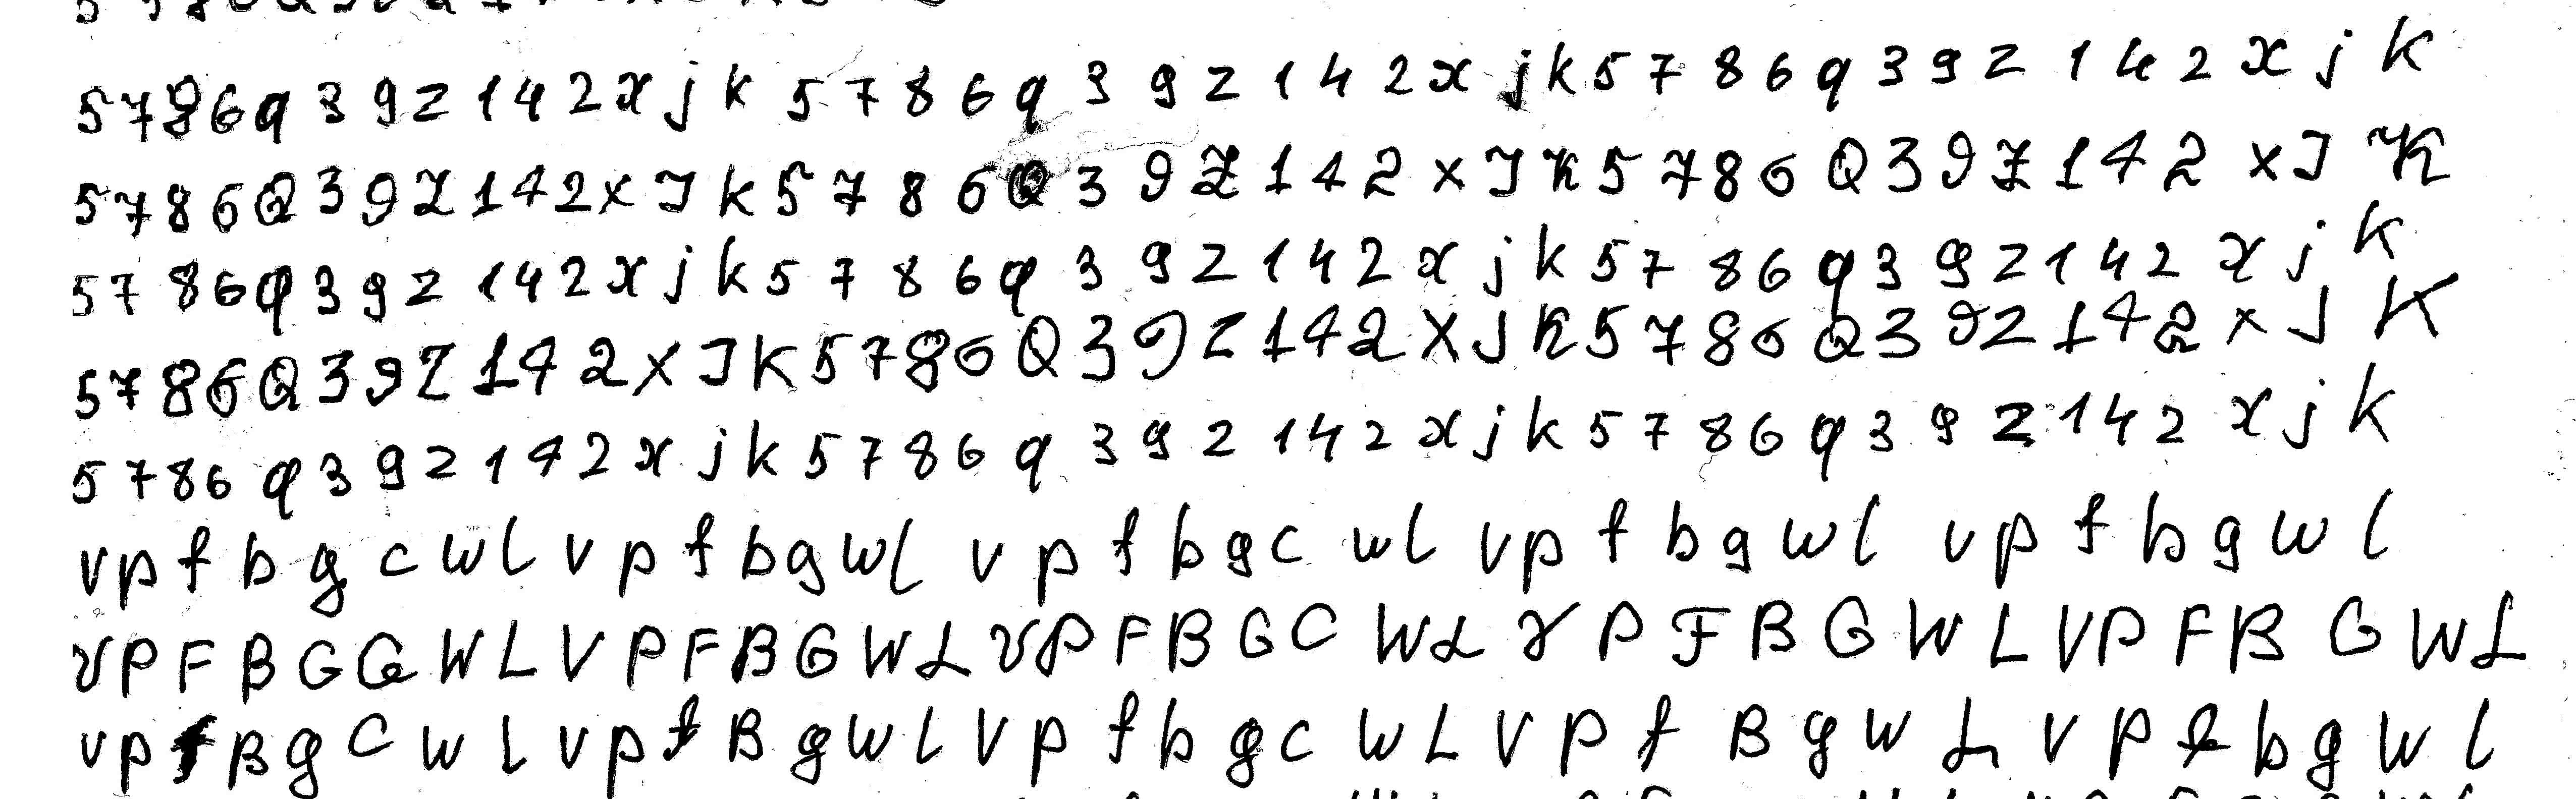 5 7 8 6 q 3 9 z 1 4 2 x j k 5 7 8 6 q 3 9 z 1 4 2 x j k 5 7 8 6 q 3 9 z 1 4 2 x j k
5 7 8 6 Q 3 9 Z 1 4 2 x J k 5 7 8 6 Q 3 9 Z 1 4 2 x J K 5 7 8 6 Q 3 9 Z 1 4 2 x J K
5 7 8 6 q 3 9 z 1 4 2 x j k 5 7 8 6 q 3 9 z 1 4 2 x j k 5 7 8 6 q 3 9 z 1 4 2 x j k
5 7 8 6 Q 3 9 Z 1 4 2 X J K 5 7 8 6 Q 3 9 Z 1 4 2 X J K 5 7 8 6 Q 3 9 Z 1 4 2 x J K
5 7 8 6 q 3 9 z 1 4 2 x j k 5 7 8 6 q 3 9 z 1 4 2 x j k 5 7 8 6 q 3 9 z 1 4 2 x j k
v p f b g c w l v p f b g w l v p f b g c w l v p f b g w l v p f b g w l
V P F B G G W L V P F B G W L V P F B G C W L V P F B G W L V P F B G W L
v p f B g C w l v p f B g w l V p f b g c w L V P f B g w L v p f b g w l